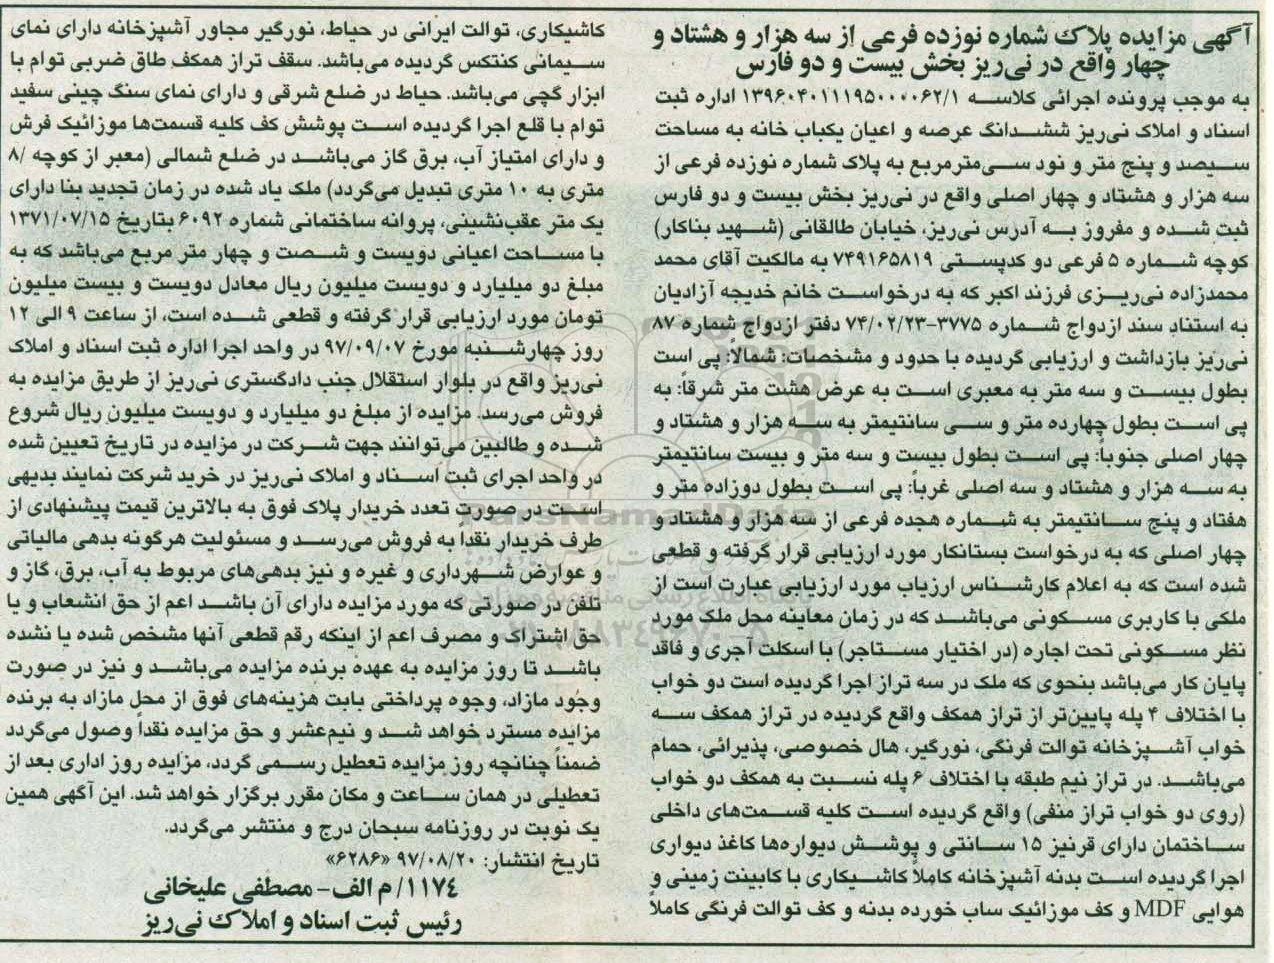 آگهی مزایده پلاک شماره نوزده فرعی از سه هزار و هشتاد و
چهار واقع در نی‌ریز بخش بیست و دو فارس
به موجب پرونده اجرائی کلاسه ۱۳۹۶۰۴۰۱۱۱۹۵۰۰۰۰۶۲/۱ اداره ثبت
اسناد و املاک نی‌ریز ششدانگ عرصه و اعیان یکباب خانه به مساحت
سیصد و پنج متر و نود سی‌مترمربع به پلاک شماره نوزده فرعی از
سه هزار و هشتاد و چهار اصلی واقع در نی‌ریز بخش بیست و دو فارس
ثبت شده و مفروز به آدرس نی‌ریز، خیابان طالقانی (شهید بناکار)
کوچه شماره ۵ فرعی دو کدپستی ۷۴۹۱۶۵۸۱۹ به مالکیت آقای محمد
محمدزاده نی‌ریزی فرزند اکبر که به درخواست خانم خدیجه آزادیان
به استناد سند ازدواج شماره ۳۷۷۵-۷۴/۰۲/۲۳ دفتر ازدواج شماره ۸۷
نی‌ریز بازداشت و ارزیابی گردیده با حدود و مشخصات: شمالاً: پی است
بطول بیست و سه متر به معبری است به عرض هشت متر شرقاً: به
پی است بطول چهارده متر و سی سانتیمتر به سه هزار و هشتاد و
چهار اصلی جنوباً: پی است بطول بیست و سه متر و بیست سانتیمتر
به سه هزار و هشتاد و سه اصلی غرباً: پی است بطول دوزاده متر و
هفتاد و پنج سانتیمتر به شماره هجده فرعی از سه هزار و هشتاد و
چهار اصلی که به درخواست بستانکار مورد ارزیابی قرار گرفته و قطعی
شده است که به اعلام کارشناس ارزیاب مورد ارزیابی عبارت است از
ملکی با کاربری مسکونی می‌باشد که در زمان معاینه محل ملک مورد
نظر مسکونی تحت اجاره (در اختیار مستاجر) با اسکلت آجری و فاقد
پایان کار می‌باشد بنحوی که ملک در سه تراز اجرا گردیده است دو خواب
با اختلاف ۴ پله پایین‌تر از تراز همکف واقع گردیده در تراز همکف سه
خواب آشپزخانه توالت فرنگی، نورگیر، هال خصوصی، پذیرائی، حمام
می‌باشد. در تراز نیم طبقه با اختلاف ۶ پله نسبت به همکف دو خواب
(روی دو خواب تراز منفی) واقع گردیده است کلیه قسمت‌های داخلی
ساختمان دارای قرنیز ۱۵ سانتی و پوشش دیواره‌ها کاغذ دیواری
اجرا گردیده است بدنه آشپزخانه کاملاً کاشیکاری با کابینت زمینی و
هوایی MDF و کف موزائیک ساب خورده بدنه و کف توالت فرنگی کاملاً
کاشیکاری، توالت ایرانی در حیاط، نورگیر مجاور آشپزخانه دارای نمای
سیمانی کنتکس گردیده می‌باشد. سقف تراز همکف طاق ضربی توام با
ابزار گچی می‌باشد. حیاط در ضلع شرقی و دارای نمای سنگ چینی سفید
توام با قلع اجرا گردیده است پوشش کف کلیه قسمت‌ها موزائیک فرش
و دارای امتیاز آب، برق گاز می‌باشد در ضلع شمالی (معبر از کوچه ۸/
متری به ۱۰ متری تبدیل می‌گردد) ملک یاد شده در زمان تجدید بنا دارای
یک متر عقب‌نشینی، پروانه ساختمانی شماره ۶۰۹۲ بتاریخ ۱۳۷۱/۰۷/۱۵
با مساحت اعیانی دویست و شصت و چهار متر مربع می‌باشد که به
مبلغ دو میلیارد و دویست میلیون ریال معادل دویست و بیست میلیون
تومان مورد ارزیابی قرار گرفته و قطعی شده است، از ساعت ۹ الی ۱۲
روز چهارشنبه مورخ ۹۷/۰۹/۰۷ در واحد اجرا اداره ثبت اسناد و املاک
نی‌ریز واقع در بلوار استقلال جنب دادگستری نی‌ریز از طریق مزایده به
فروش می‌رسد. مزایده از مبلغ دو میلیارد و دویست میلیون ریال شروع
شده و طالبین می‌توانند جهت شرکت در مزایده در تاریخ تعیین شده
در واحد اجرای ثبت اسناد و املاک نی‌ریز در خرید شرکت نمایند بدیهی
است در صورت تعدد خریدار پلاک فوق به بالاترین قیمت پیشنهادی از
طرف خریدار نقدا به فروش می‌رسد و مسئولیت هرگونه بدهی مالیاتی
و عوارض شهرداری و غیره و نیز بدهی‌های مربوط به آب، برق، گاز و
تلفن در صورتی که مورد مزایده دارای آن باشد اعم از حق انشعاب و یا
حق اشتراک و مصرف اعم از اینکه رقم قطعی آنها مشخص شده یا نشده
باشد تا روز مزایده به عهده برنده مزایده می‌باشد و نیز در صورت
وجود مازاد، وجوه پرداختی بابت هزینه‌های فوق از محل مازاد به برنده
مزایده مسترد خواهد شد و نیم‌عشر و حق مزایده نقداً وصول می‌گردد
ضمناً چنانچه روز مزایده تعطیل رسمی گردد، مزایده روز اداری بعد از
تعطیلی در همان ساعت و مکان مقرر برگزار خواهد شد. این آگهی همین
یک نوبت در روزنامه سبحان درج و منتشر می‌گردد.
تاریخ انتشار: ۹۷/۰۸/۲۰ «۶۲۸۶»
۱۱۷۴/ م الف- مصطفی علیخانی
رئیس ثبت اسناد و املاک نی‌ریز
ParsNamadData